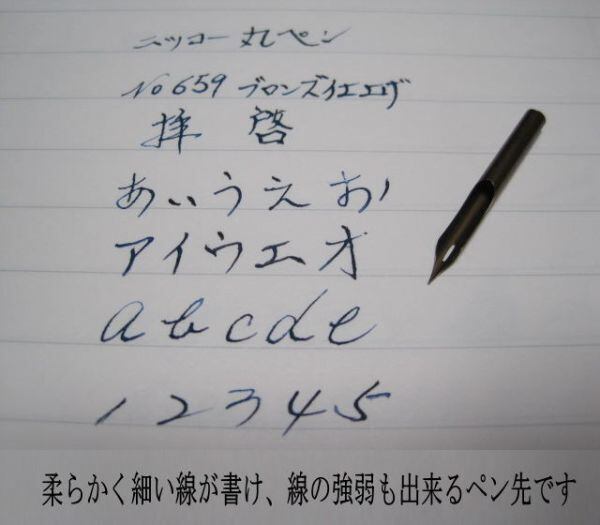 ニッコー 丸ペン
No 659 ブロンズ仕上げ
拝 啓
あ い う え お
ア イ ウ エ オ
a b c d e
1 2 3 4 5
柔らかく細い線が書け、線の強弱も出来るペン先です